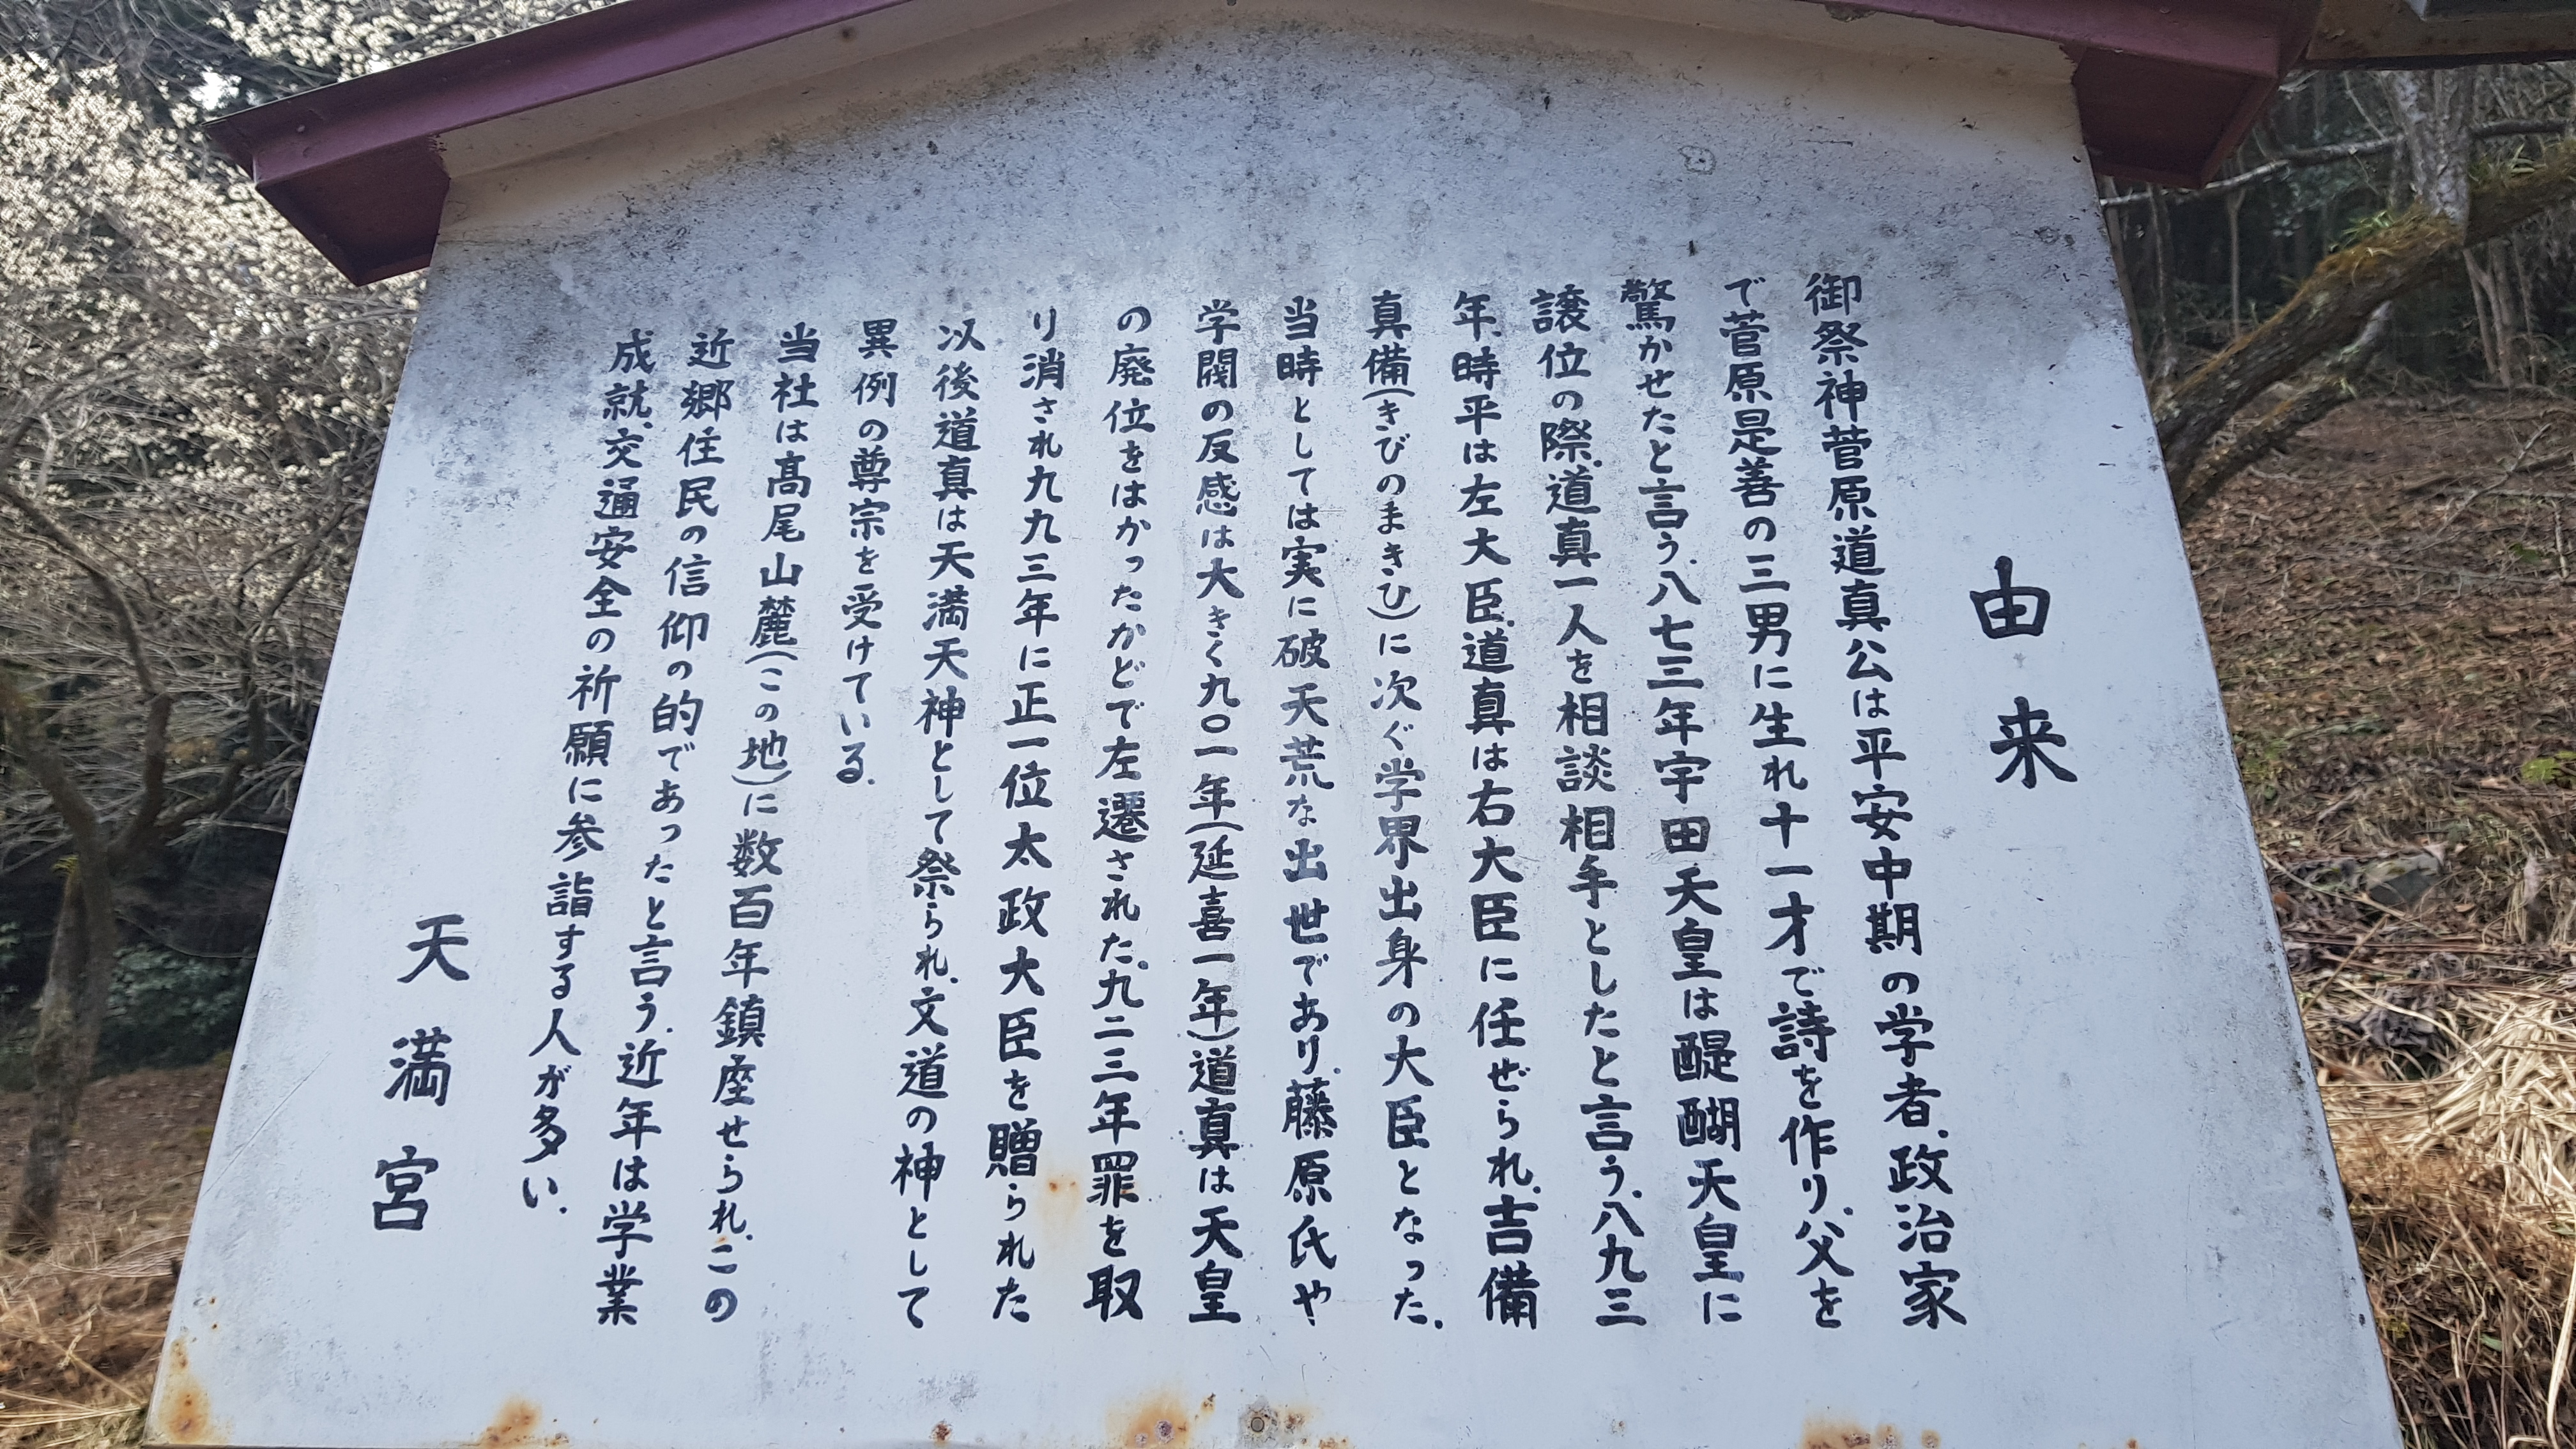 由来
御祭神菅原道真公は平安中期の学者、政治家
で菅原是善の三男に生れ十一才で詩を作り、父を
驚かせたと言う、八七三年宇田天皇は醍醐天皇に
譲位の際、道真一人を相談相手としたと言う、八九三
年、時平は左大臣、道真は右大臣に任ぜられ、吉備
真備(きびのまきひ)に次ぐ学界出身の大臣となった、
当時としては実に破天荒な出世であり、藤原氏や
学閥の反感は大きく九〇一年(延喜一年)道真は天皇
の廃位をはかったかどで左遷された、九二三年罪を取
り消され九九三年に正一位太政大臣を贈られた
以後道真は天満天神として祭られ、文道の神として
異例の尊宗を受けている、
当社は高尾山麓(この地)に数百年鎮座せられ、この
近郷住民の信仰の的であったと言う、近年は学業
成就、交通安全の祈願に参詣する人が多い、
天満宮